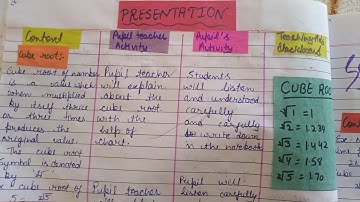 PRESENTATION
Content
Pupil teacher
Activity
Pupil's
Activity
Teaching Aid
Blackboard
Cube root:-
Cube root of number
is a value which
when multiplied
by itself thrice
or three times
produces the
original value.
The cube root
Symbol is denoted
by
cube root of
Pupil teacher
will explain
about the
cube root
with the
help of
chart.
Pupil teacher
will
Students
will listen
and understood
carefully
and carefully
write down
in the notebook
Pupil will
listen carefully
CUBE ROO
∛1 = 1
∛2 = 1.239
∛3 = 1.442
∛4 = 1.58
∛5 = 1.70